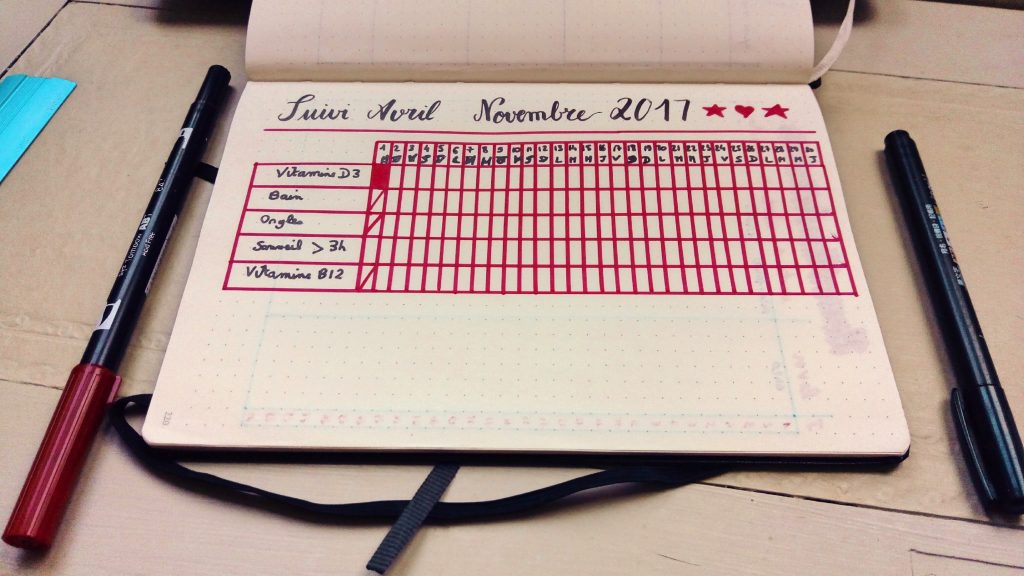 Suivi Avril Novembre 2017
1 2 3 4 5 6 7 8 9 10 11 12 13 14 15 16 17 18 19 20 21 22 23 24 25 26 27 28 29 30
M J V S D L M M J V S D L M M J V S D L M M J V S D L M M J
Vitamine D3
Bain
Ongles
Sommeil > 3h
Vitamine B12
Tombow AB